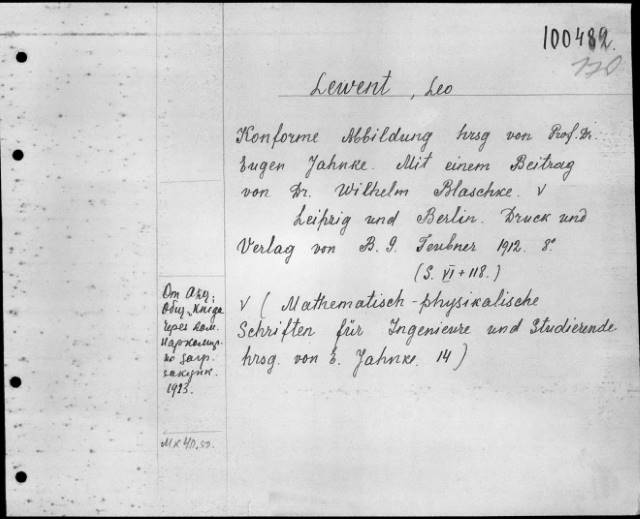 100482
120
Lewent, Leo
Konforme Abbildung hrsg von Prof. Dr.
Eugen Jahnke. Mit einem Beitrag
von Dr. Wilhelm Blaschke. v
Leipzig und Berlin. Druck und
Verlag von B. G. Teubner 1912. 8°
(S. VI + 118.)
v (Mathematisch-physikalische
Schriften für Ingenieure und Studierende
hrsg. von E. Jahnke. 14)
От Акц.
Общ. Книга
через ком.
Наркомпр.
по загр.
закупк.
1923.
Мк 40,50.